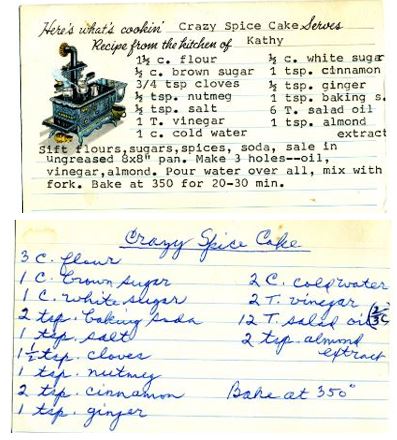 Here's what's cookin' Crazy Spice Cake Serves
Recipe from the kitchen of Kathy
1½ c. flour ½ c. white sugar
½ c. brown sugar 1 tsp. cinnamon
3/4 tsp cloves ½ tsp. ginger
½ tsp. nutmeg 1 tsp. baking s.
½ tsp. salt 6 T. salad oil
1 T. vinegar 1 tsp. almond
1 c. cold water extract
Sift flours,sugars,spices, soda, sale in
ungreased 8x8" pan. Make 3 holes--oil,
vinegar,almond. Pour water over all, mix with
fork. Bake at 350 for 20-30 min.
Crazy Spice Cake
3 C. flour
1 C. brown sugar 2 C. cold water
1 C. white sugar 2 T. vinegar
2 tsp. baking soda 12 T. salad oil
1 tsp. salt 2 tsp. almond
1½ tsp. cloves extract
1 tsp. nutmeg
2 tsp. cinnamon Bake at 350°
1 tsp. ginger